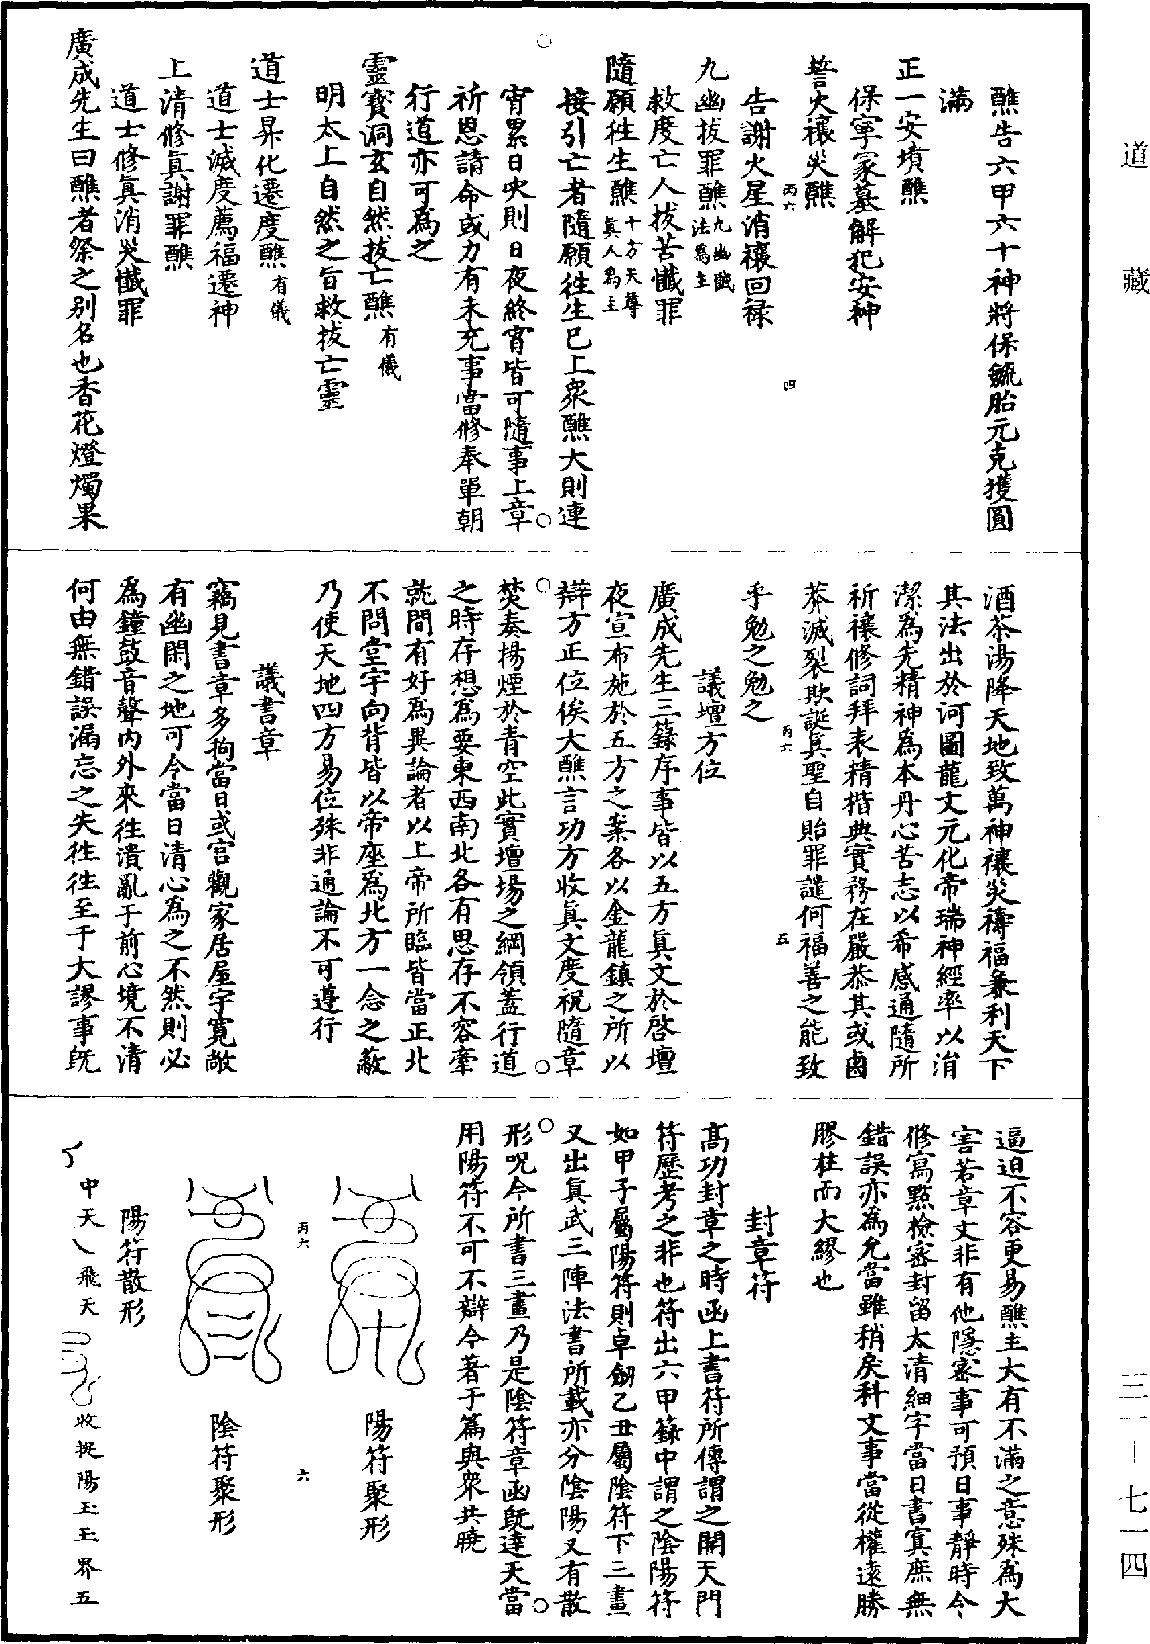 道藏
醮告六甲六十神將保毓胎元克獲圓
滿
正一安墳醮
保寧冢墓解犯安神
誓火禳災醮
告謝火星消禳回祿
丙六
四
九幽拔罪醮九幽懺法為主
救度亡人拔苦懺罪
隨願往生醮十方天尊真人為主
接引亡者隨願往生已上眾醮大則連
宵累日次則日夜終宵皆可隨事上章
祈恩請命或力有未充事當修奉單朝
行道亦可為之
靈寶洞玄自然拔亡醮有儀
明太上自然之旨救拔亡靈
道士昇化遷度醮有儀
道士滅度薦福遷神
上清修真謝罪醮
道士修真消災懺罪
廣成先生曰醮者祭之別名也香花燈燭果
酒茶湯降天地致萬神禳災禱福兼利天下
其法出於河圖龍文元化帝瑞神經率以涓
潔為先精神為本丹心苦志以希感通隨所
祈禳修詞拜表精楷典實務在嚴恭其或鹵
莽滅裂欺誕真聖自貽罪譴何福善之能致
乎勉之勉之
丙六
五
議壇方位
廣成先生三籙序事皆以五方真文於啓壇
夜宣布施於五方之案各以金龍鎮之所以
辯方正位俟大醮言功方收真文度祝隨章
焚奏揚煙於青空此實壇場之綱領蓋行道
之時存想為要東西南北各有思存不容牽
就間有好為異論者以上帝所臨皆當正北
不問堂宇向背皆以帝座為北方一念之蔽
乃使天地四方易位殊非通論不可遵行
議書章
竊見書章多拘當日或宮觀家居屋宇寬敞
有幽閑之地可令當日清心為之不然則必
為鐘鼓音聲內外來往潰亂于前心境不清
何由無錯誤漏忘之失往往至于大謬事既
逼迫不容更易醮主大有不滿之意殊為大
害若章文非有他隱密事可預日事靜時令
修寫點檢審封留太清細字當日書寘庶無
錯誤亦為允當雖稍戾科文事當從權遠勝
膠柱而大繆也
封章符
高功封章之時函上書符所傳謂之開天門
符歷考之非也符出六甲籙中謂之陰陽符
如甲子屬陽符則卓劒乙丑屬陰符下三畫
又出真武三陣法書所載亦分陰陽又有散
形呪今所書三畫乃是陰符章函既達天當
用陽符不可不辯今著于篇與眾共曉
陽符聚形
丙六
六
陰符聚形
陽符散形
中天 飛天 收捉陽玉玉界五
三一—七一四